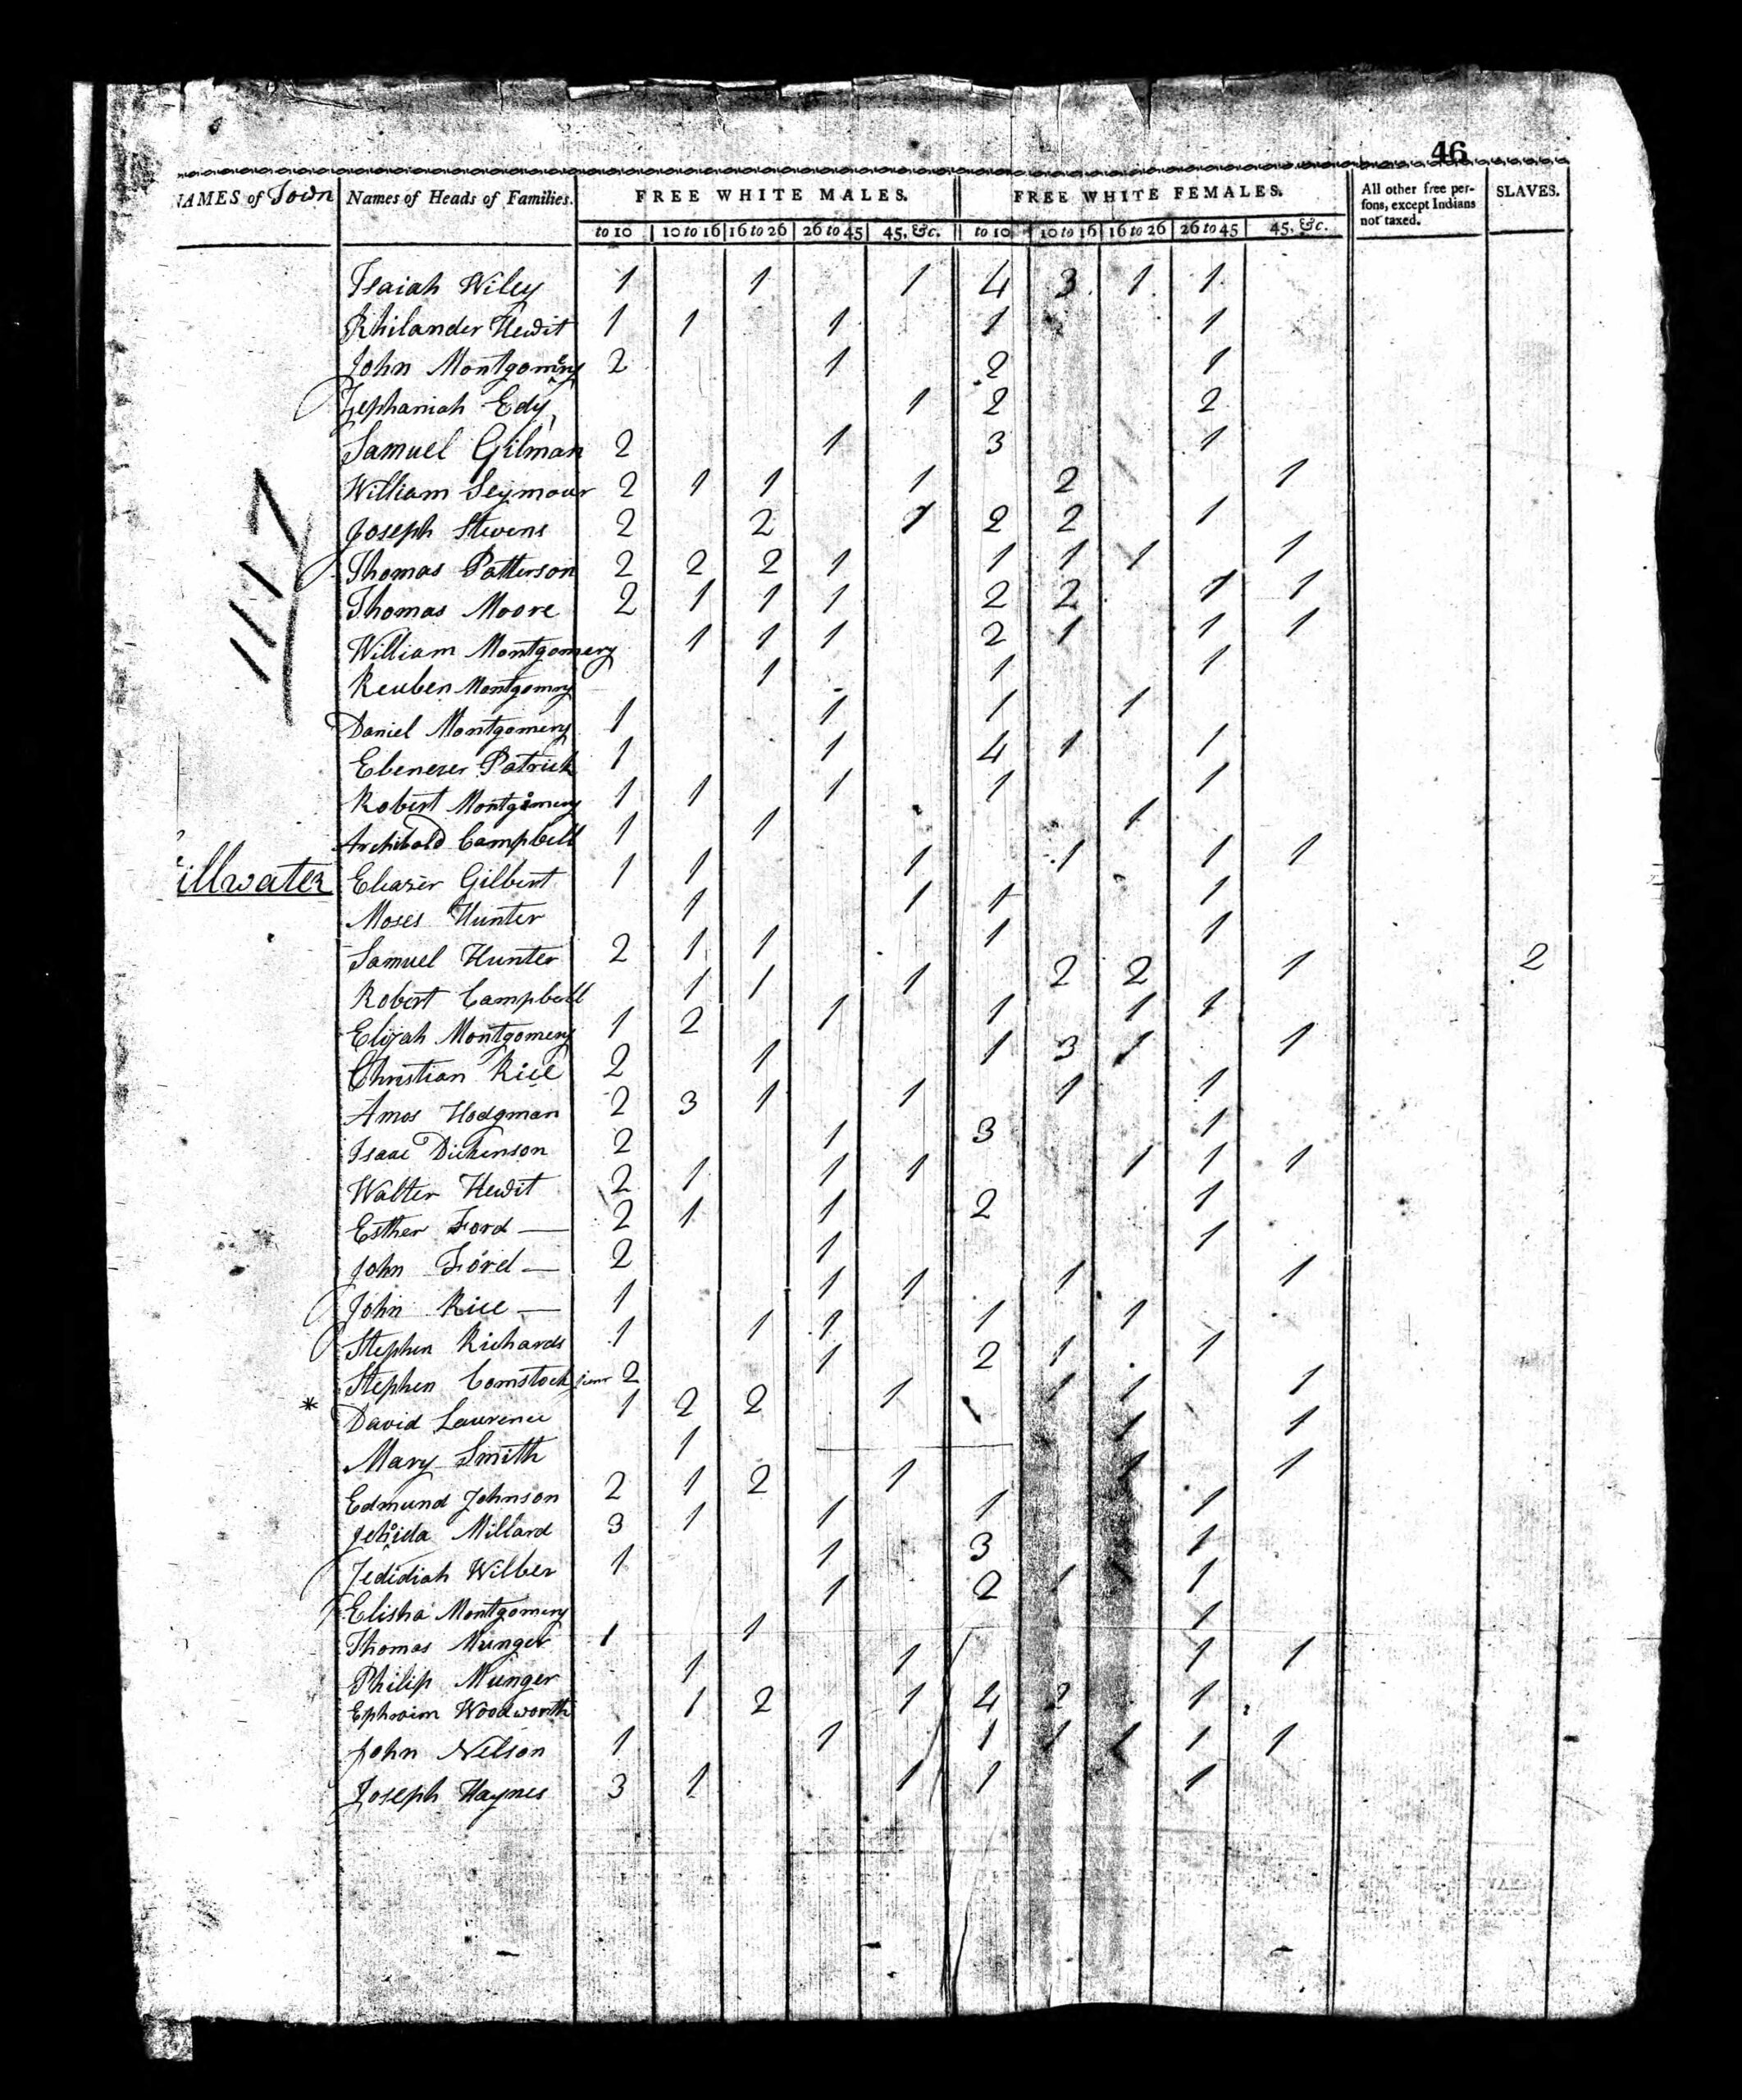 46
NAMES of Town Names of Heads of Families. FREE WHITE MALES. FREE WHITE FEMALES. All other free persons, except Indians not taxed. SLAVES.
to 10 10 to 16 16 to 26 26 to 45 45, &c. to 10 10 to 16 16 to 26 26 to 45 45, &c.
Isaiah Wiley 1 1 1 4 3 1 1
Philander Hewit 1 1 1 1 1
John Montgomery 2 1 2 1
Zephaniah Edy 1 2 2
Samuel Gilman 2 1 3 1
William Seymour 2 1 1 1 2 1
Joseph Stevens 2 2 1 2 2 1
Thomas Patterson 2 2 2 1 1 1 1 1
Thomas Moore 2 1 1 1 2 2 1 1
William Montgomery 1 1 1 2 1 1 1
Reuben Montgomry 1 1 1
Daniel Montgomery 1 1 1 1
Ebenezer Patrick 1 1 4 1 1
Robert Montgomery 1 1 1 1 1
Archibald Campbell 1 1 1
illwater Eleazer Gilbert 1 1 1 1 1 1
Moses Hunter 1 1 1 1
Samuel Hunter 2 1 1 1 1
Robert Campbell 1 1 1 2 2 1 2
Elijah Montgomery 1 2 1 1 1 1
Christian Rice 2 1 1 3 1 1
Amos Hodgman 2 3 1 1 1 1
Isaac Dickenson 2 1 3 1
Walter Hewit 2 1 1 1 1 1 1
Esther Ford — 2 1 1 2 1
John Ford — 2 1 1
John Rice — 1 1 1 1 1
Stephen Richards 1 1 1 1 1
Stephen Comstock junr 2 1 2 1 1
* David Lawrence 1 2 2 1 1 1 1
Mary Smith 1 1 1
Edmund Johnson 2 1 2 1 1 1
Millard 3 1 1 1 1
Jedidiah Wilber 1 1 3 1
Elisha Montgomery 1 2 1 1
Thomas Munger 1 1 1
Philip Munger 1 1 1 1
Ephraim Woodworth 1 2 1 4 2 1
John Nelson 1 1 1 1 1 1 1
Joseph Haynes 3 1 1 1 1